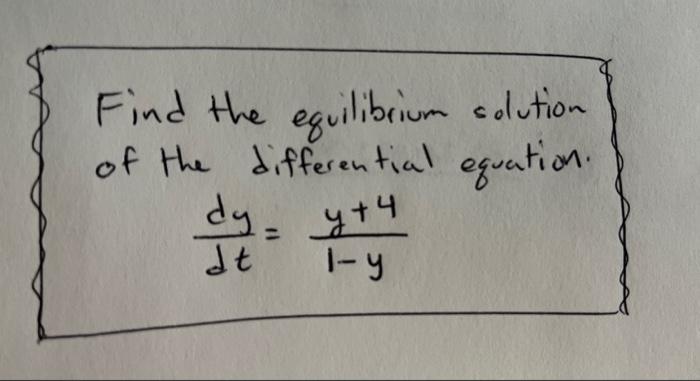 Find the equilibrium solution
of the differential equation.
dy/dt = y+4/1-y